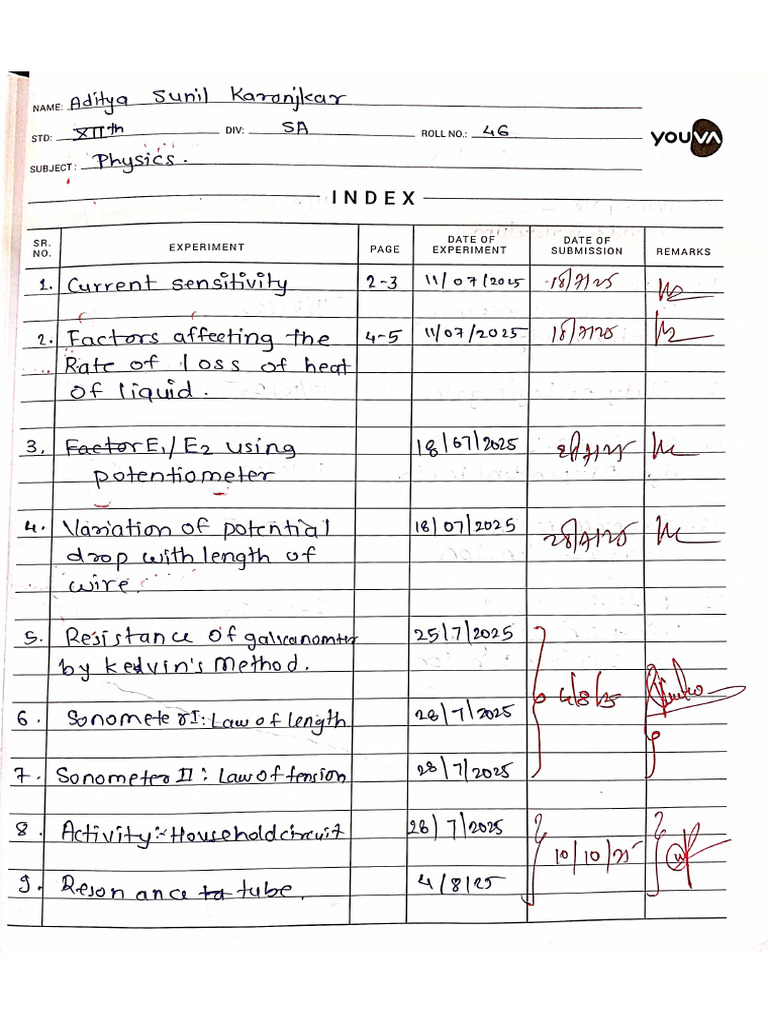 NAME: Aditya Sunil Karanjkar
STD: XIIth DIV: SA ROLL NO.: 46
YOUVA
SUBJECT: Physics.
INDEX
SR. NO. EXPERIMENT PAGE DATE OF EXPERIMENT DATE OF SUBMISSION REMARKS
1. Current sensitivity 2-3 11/07/2025 18/7/25
2. Factors affecting the 4-5 11/07/2025 18/7/25
Rate of loss of heat
of liquid.
3. Factor E1/E2 using 18/07/2025 28/7/25
potentiometer
4. Variation of potential 18/07/2025 28/7/25
drop with length of
wire.
5. Resistance of galvanometer 25/7/2025
by kelvin's Method.
4/8/25
6. Sonometer I: Law of length 28/7/2025
7. Sonometer II: Law of tension 28/7/2025
8. Activity:- Household circuit 28/7/2025
10/10/25
9. Resonance to tube. 4/8/25